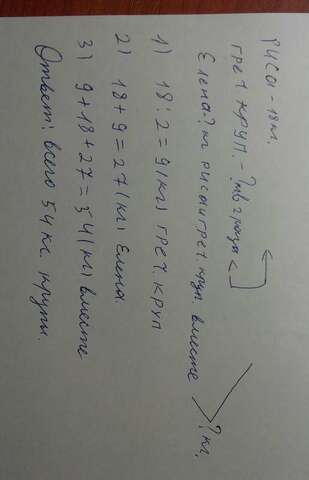 Риса - 18 кг.
греч. круп. - ? в 2 раза <
Елена ? кг риса и греч. круп. вместе
? кг.
1) 18 : 2 = 9 (кг) греч. круп
2) 18 + 9 = 27 (кг) Елена.
3) 9 + 18 + 27 = 54 (кг) вместе
Ответ: всего 54 кг. крупы.